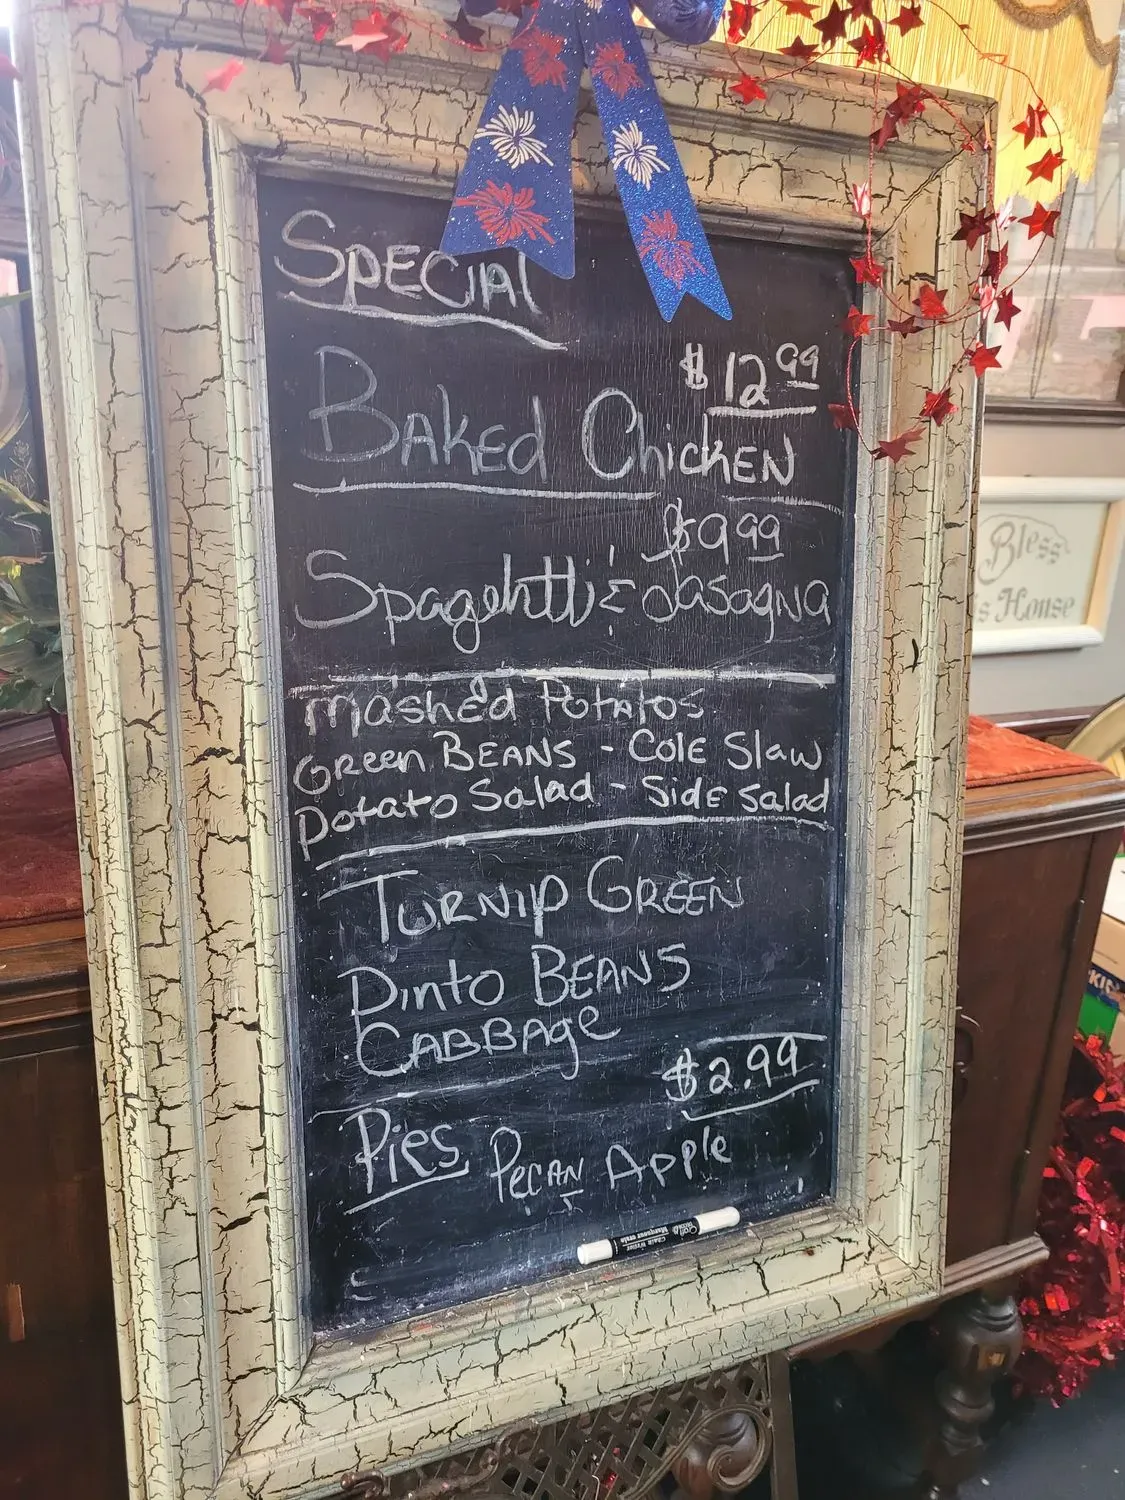 SPECIAL
$12.99
BAKED ChickEN
$9.99
Spagehtti & Lasagna
Mashed Potatos
Green BEANS - Cole Slaw
Potato Salad - Side Salad
TURNIP GREEN
Pinto BEANS
CABBAGe
$2.99
Pies PECAN Apple
Bless
s House
KIN